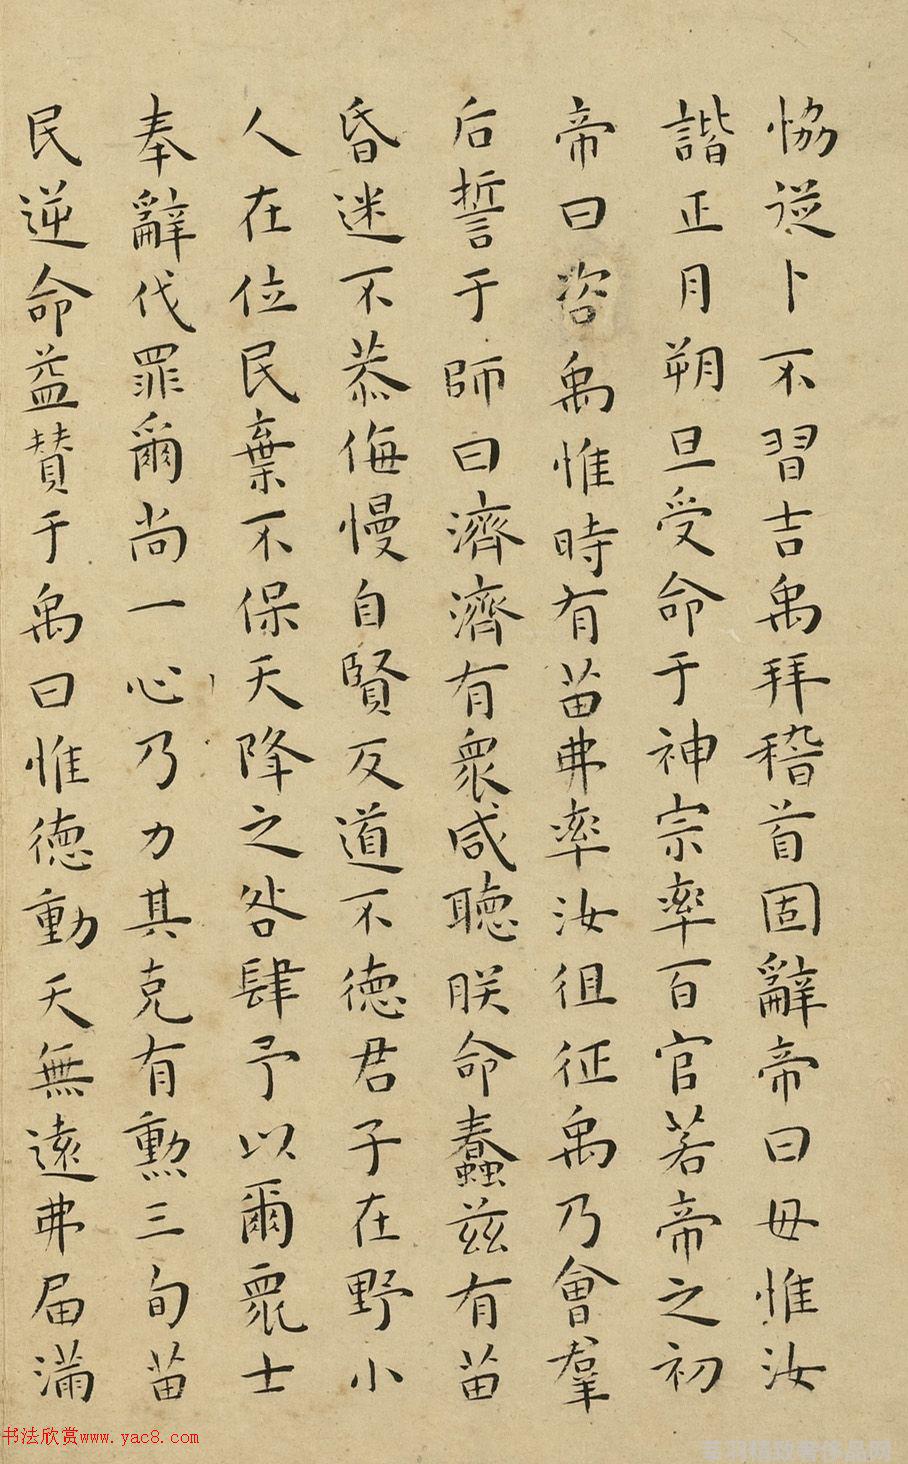 恊從卜不習吉禹拜稽首固辭帝曰毋惟汝
諧正月朔旦受命于神宗率百官若帝之初
帝曰咨禹惟時有苗弗率汝徂征禹乃會羣
后誓于師曰濟濟有衆咸聽朕命蠢兹有苗
昏迷不恭侮慢自賢反道不德君子在野小
人在位民棄不保天降之咎肆予以爾衆士
奉辭伐罪爾尚一心乃力其克有勲三旬苗
民逆命益賛于禹曰惟德動天無遠弗届滿
书法欣赏www.yac8.com